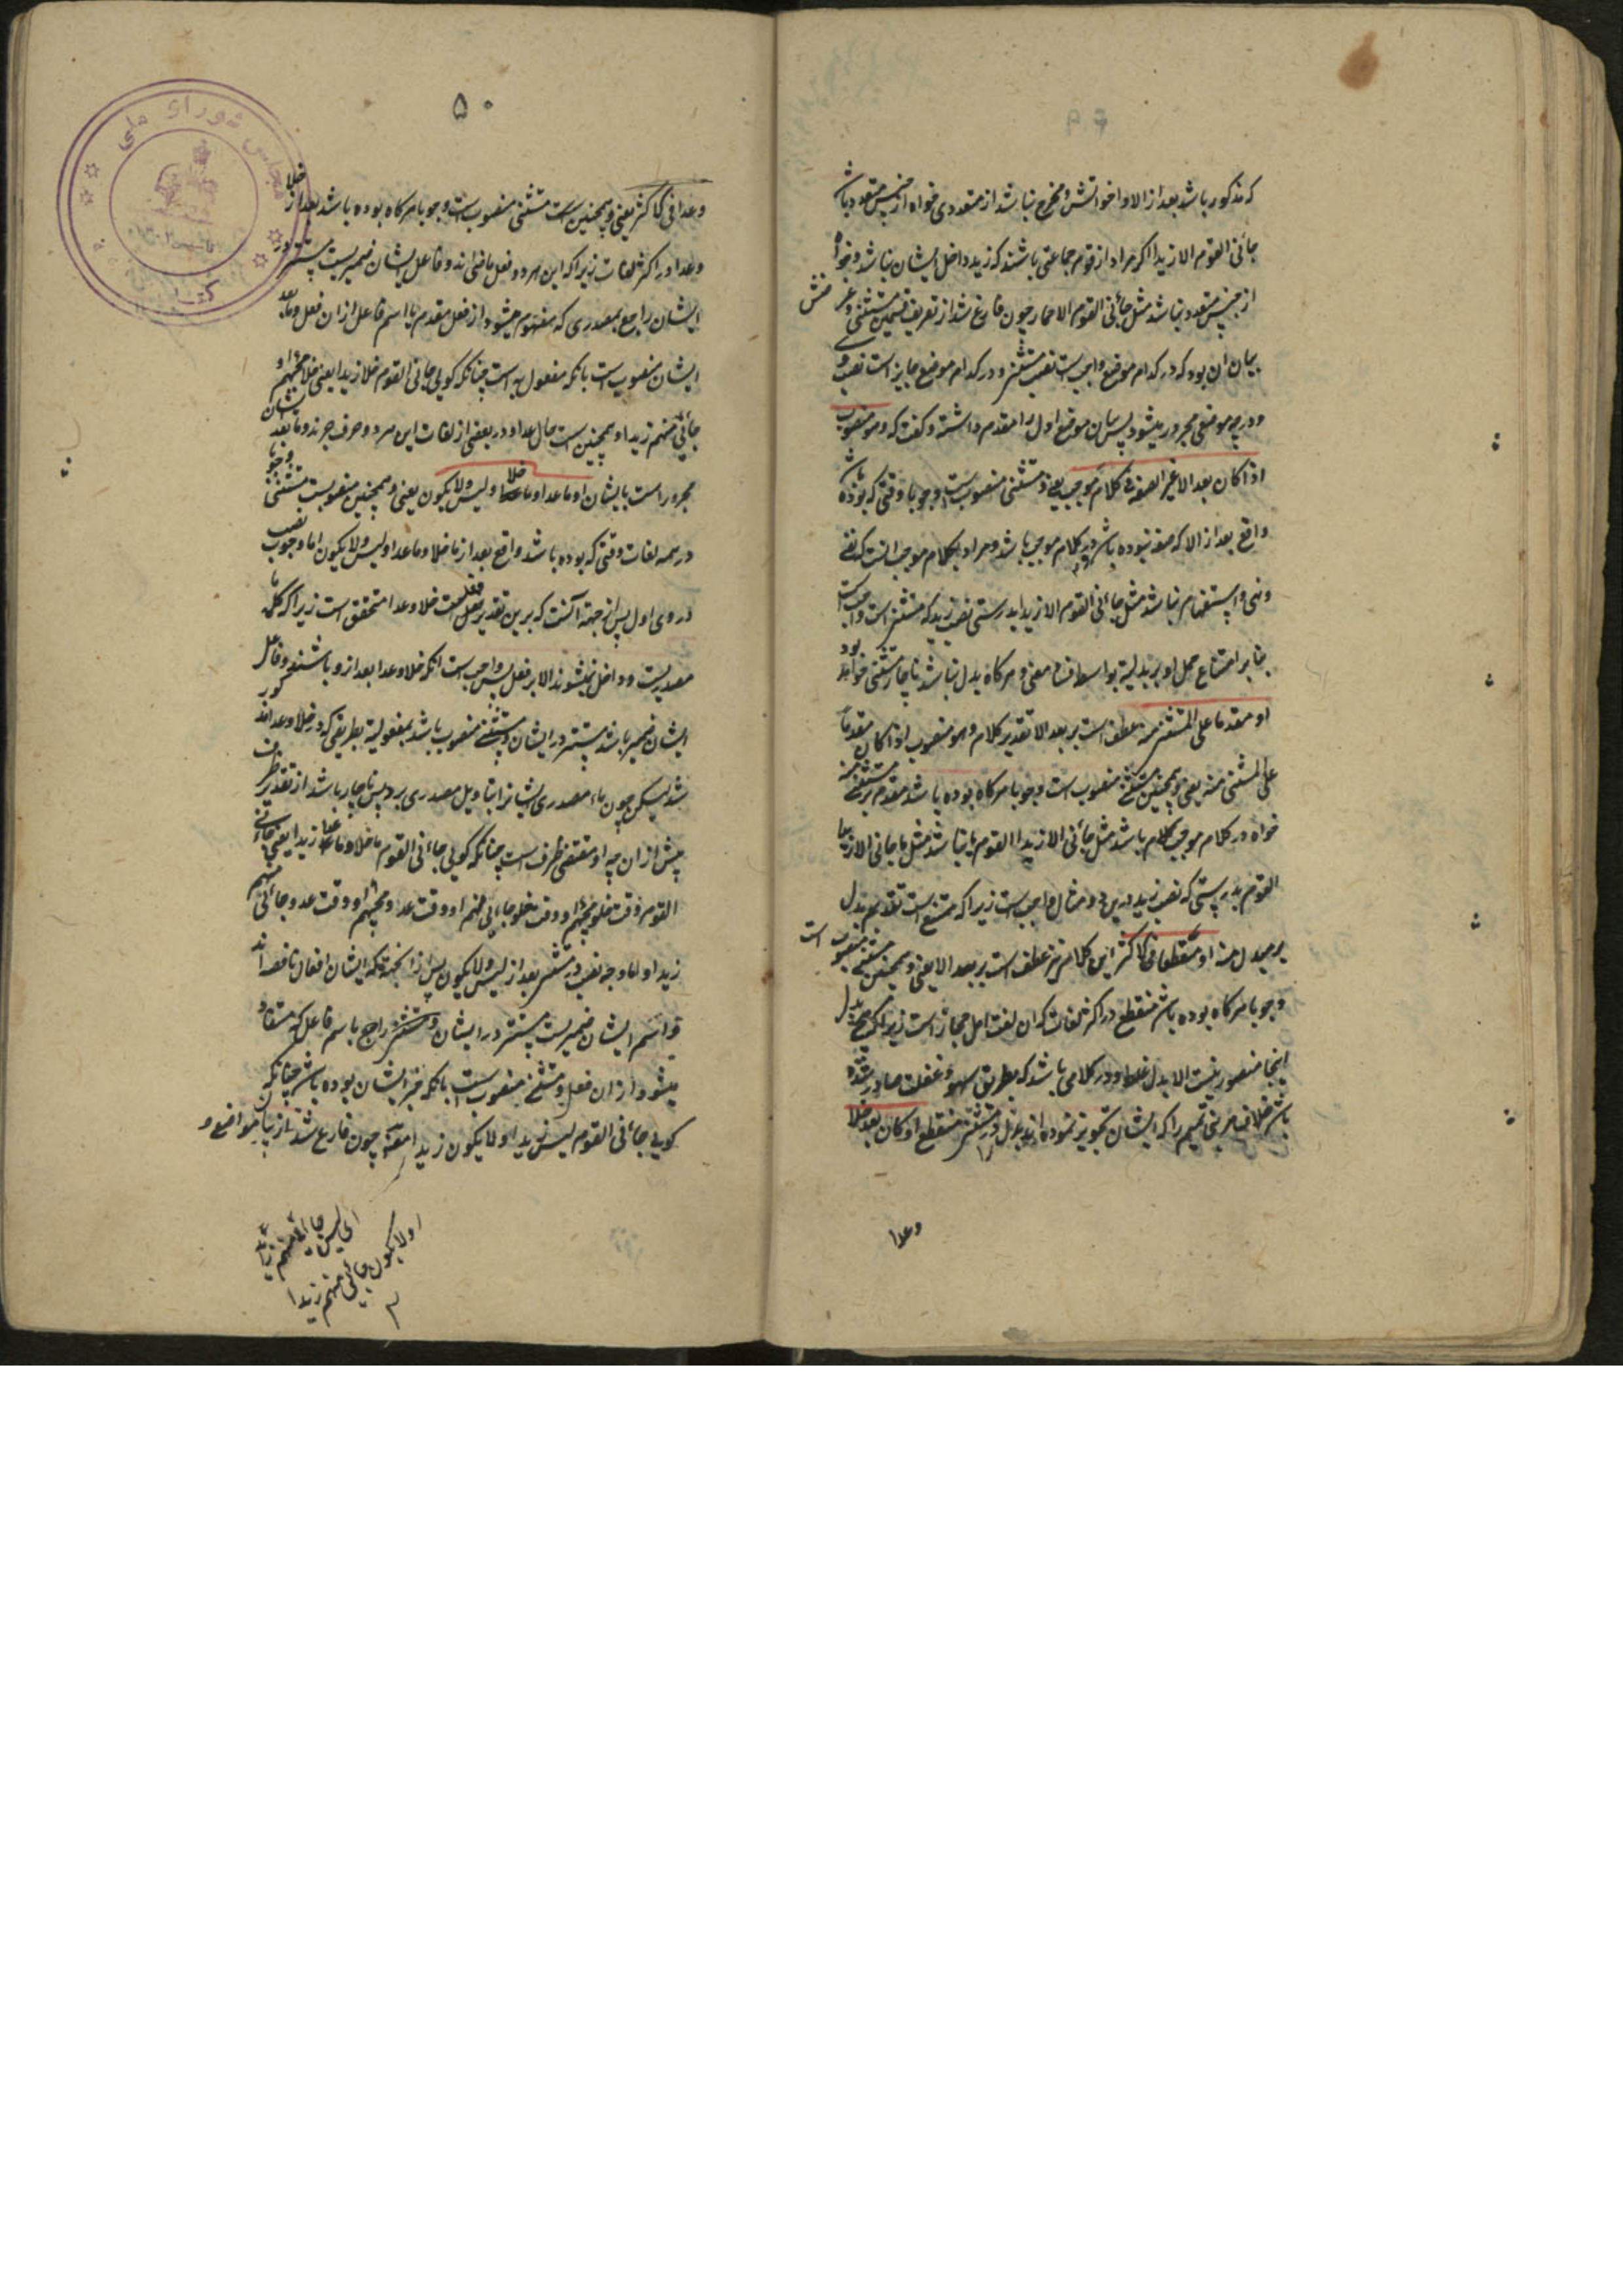 که مذکور باشد بعد از الا و اخواتش و مخرج نباشد از متعددی خواه از جنس متعدد باشد
جائنی القوم الا زیدا اگر مراد از قوم جماعتی باشند که زید داخل ایشان نباشد و خواه
از جنس متعدد نباشد مثل جائنی القوم الا حمارا چون فارغ شد از تعریف قسمین مستثنی و غرضش
بیان آن بود که در کدام موضع واجبست نصب مستثنی و در کدام موضع جایز است نصب و
و در چه موضعی مجرور میشود پس بیان موضع اول را مقدم داشته و گفت که و هو منصوب
اذا کان بعد الا غیر الصفة فی کلام موجب یعنی و مستثنی منصوبست وجوبا وقتی که بوده باشد
واقع بعد از الا که صفة نبوده باشد در کلام موجب باشد و مراد بکلام موجب آنست که نفی
و نهی و استفهام نباشد مثل جائنی القوم الا زیدا بدرستی نصب زید که مستثنی است واجبست
بنا بر امتناع حمل او بر بدلیة بواسطه فساد معنی و هرگاه بدل نباشد ناچار مستثنی خواهد بود
او مقدما علی المستثنی منه عطف است بر بعد الا تقدیر کلام و هو منصوب اذا کان مقدما
علی المستثنی منه یعنی و همچنین مستثنی منصوب است وجوبا هرگاه بوده باشد مقدم بر مستثنی منه
خواه در کلام موجب کلام باشد مثل جائنی الا زیدا القوم یا نباشد مثل ما جائنی الا زیدا
القوم بدرستی که نصب زید درین دو مثال واجبست زیرا که ممتنع است تقدیم بدل
بر مبدل منه او منقطعا فی الاکثر این کلام نیز عطف است بر بعد الا یعنی و همچنین مستثنی منصوب است
وجوبا هرگاه بوده باشد منقطع در اکثر لغات که آن لغت اهل حجاز است زیرا که هیچ بدل
اینجا متصور نیست الا بدل غلط و او در کلامی باشد که بطریق سهو و غفلت صادر شده
باشد خلاف مر بنی تمیم را که ایشان تجویز نموده اند بدل در مستثنی منقطع او کان بعد خلا
وعدا
۵۰
وعدا فی الاکثر یعنی و همچنین است مستثنی منصوبست وجوبا هرگاه بوده باشد بعد از خلا
وعدا در اکثر لغات زیرا که این هر دو فعل ماضی اند و فاعل ایشان ضمیریست مستتر در
ایشان راجع بمصدری که مفهوم میشود از فعل مقدم یا اسم فاعل از آن فعل و مابعد
ایشان منصوب است بانکه مفعول به است چنانکه گویی جائنی القوم خلا زیدا یعنی خلا مجیئهم او
جائی منهم زیدا و همچنین است حال عدا و در بعضی از لغات این هر دو حرف جرند و مابعد ایشان
مجرور است بایشان او ما عدا او ما خلا و لیس و لا یکون یعنی و همچنین منصوبست مستثنی وجوبا
در همه لغات وقتی که بوده باشد واقع بعد از ما خلا و ما عدا و لیس و لا یکون اما وجوب نصب
در وی اول پس از جهة آنست که برین تقدیر فعلیت خلا و عدا متحقق است زیرا که کلمه ما
مصدریست و داخل نمیشوند الا بر فعل پس واجبست انکه خلا و عدا بعد از و باشند و فاعل
ایشان ضمیر باشد مستتر در ایشان و مستثنی منصوب باشد بمفعولیة بطریقی که در خلا و عدا مذکور
شد لیکن چون ماء مصدری ایشانرا بتاویل مصدری برد پس ناچار باشد از تقدیر ظرف
پیش از آن چه او مقتضی ظرف است چنانکه گویی جاءنی القوم ما خلا و ما عدا زیدا یعنی جائنی
القوم وقت خلو مجیئهم او وقت خلو جائی منهم او وقت عدو مجیئهم او وقت عدو جائی منهم
زیدا و اما وجه نصب در مستثنی بعد از لیس و لا یکون پس از انجهة که ایشان افعال ناقصه اند
و اسم ایشان ضمیریست مستتر در ایشان راجع باسم فاعل که مستفاد
میشود از آن فعل و مستثنی منصوبست بانکه خبر ایشان بوده باشد چنانکه
گویی جائنی القوم لیس زیدا و لا یکون زیدا چون فارغ شد از بیان مواضع و
ای لیس جائی منهم زیدا
او لا یکون جائی منهم زیدا
مجلس شورای ملی